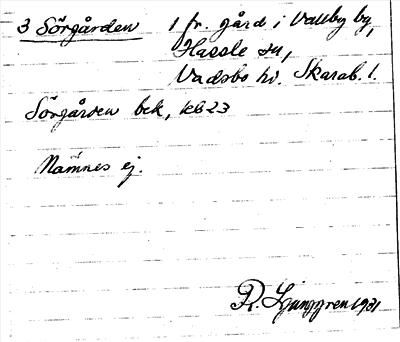 3 Sörgården 1 fr. gård i Vallby by,
Hassle sn,
Vadsbo hd. Skarab. l.
Sörgården bek, kb23
Nämnes ej.
R. Ljunggren 1931